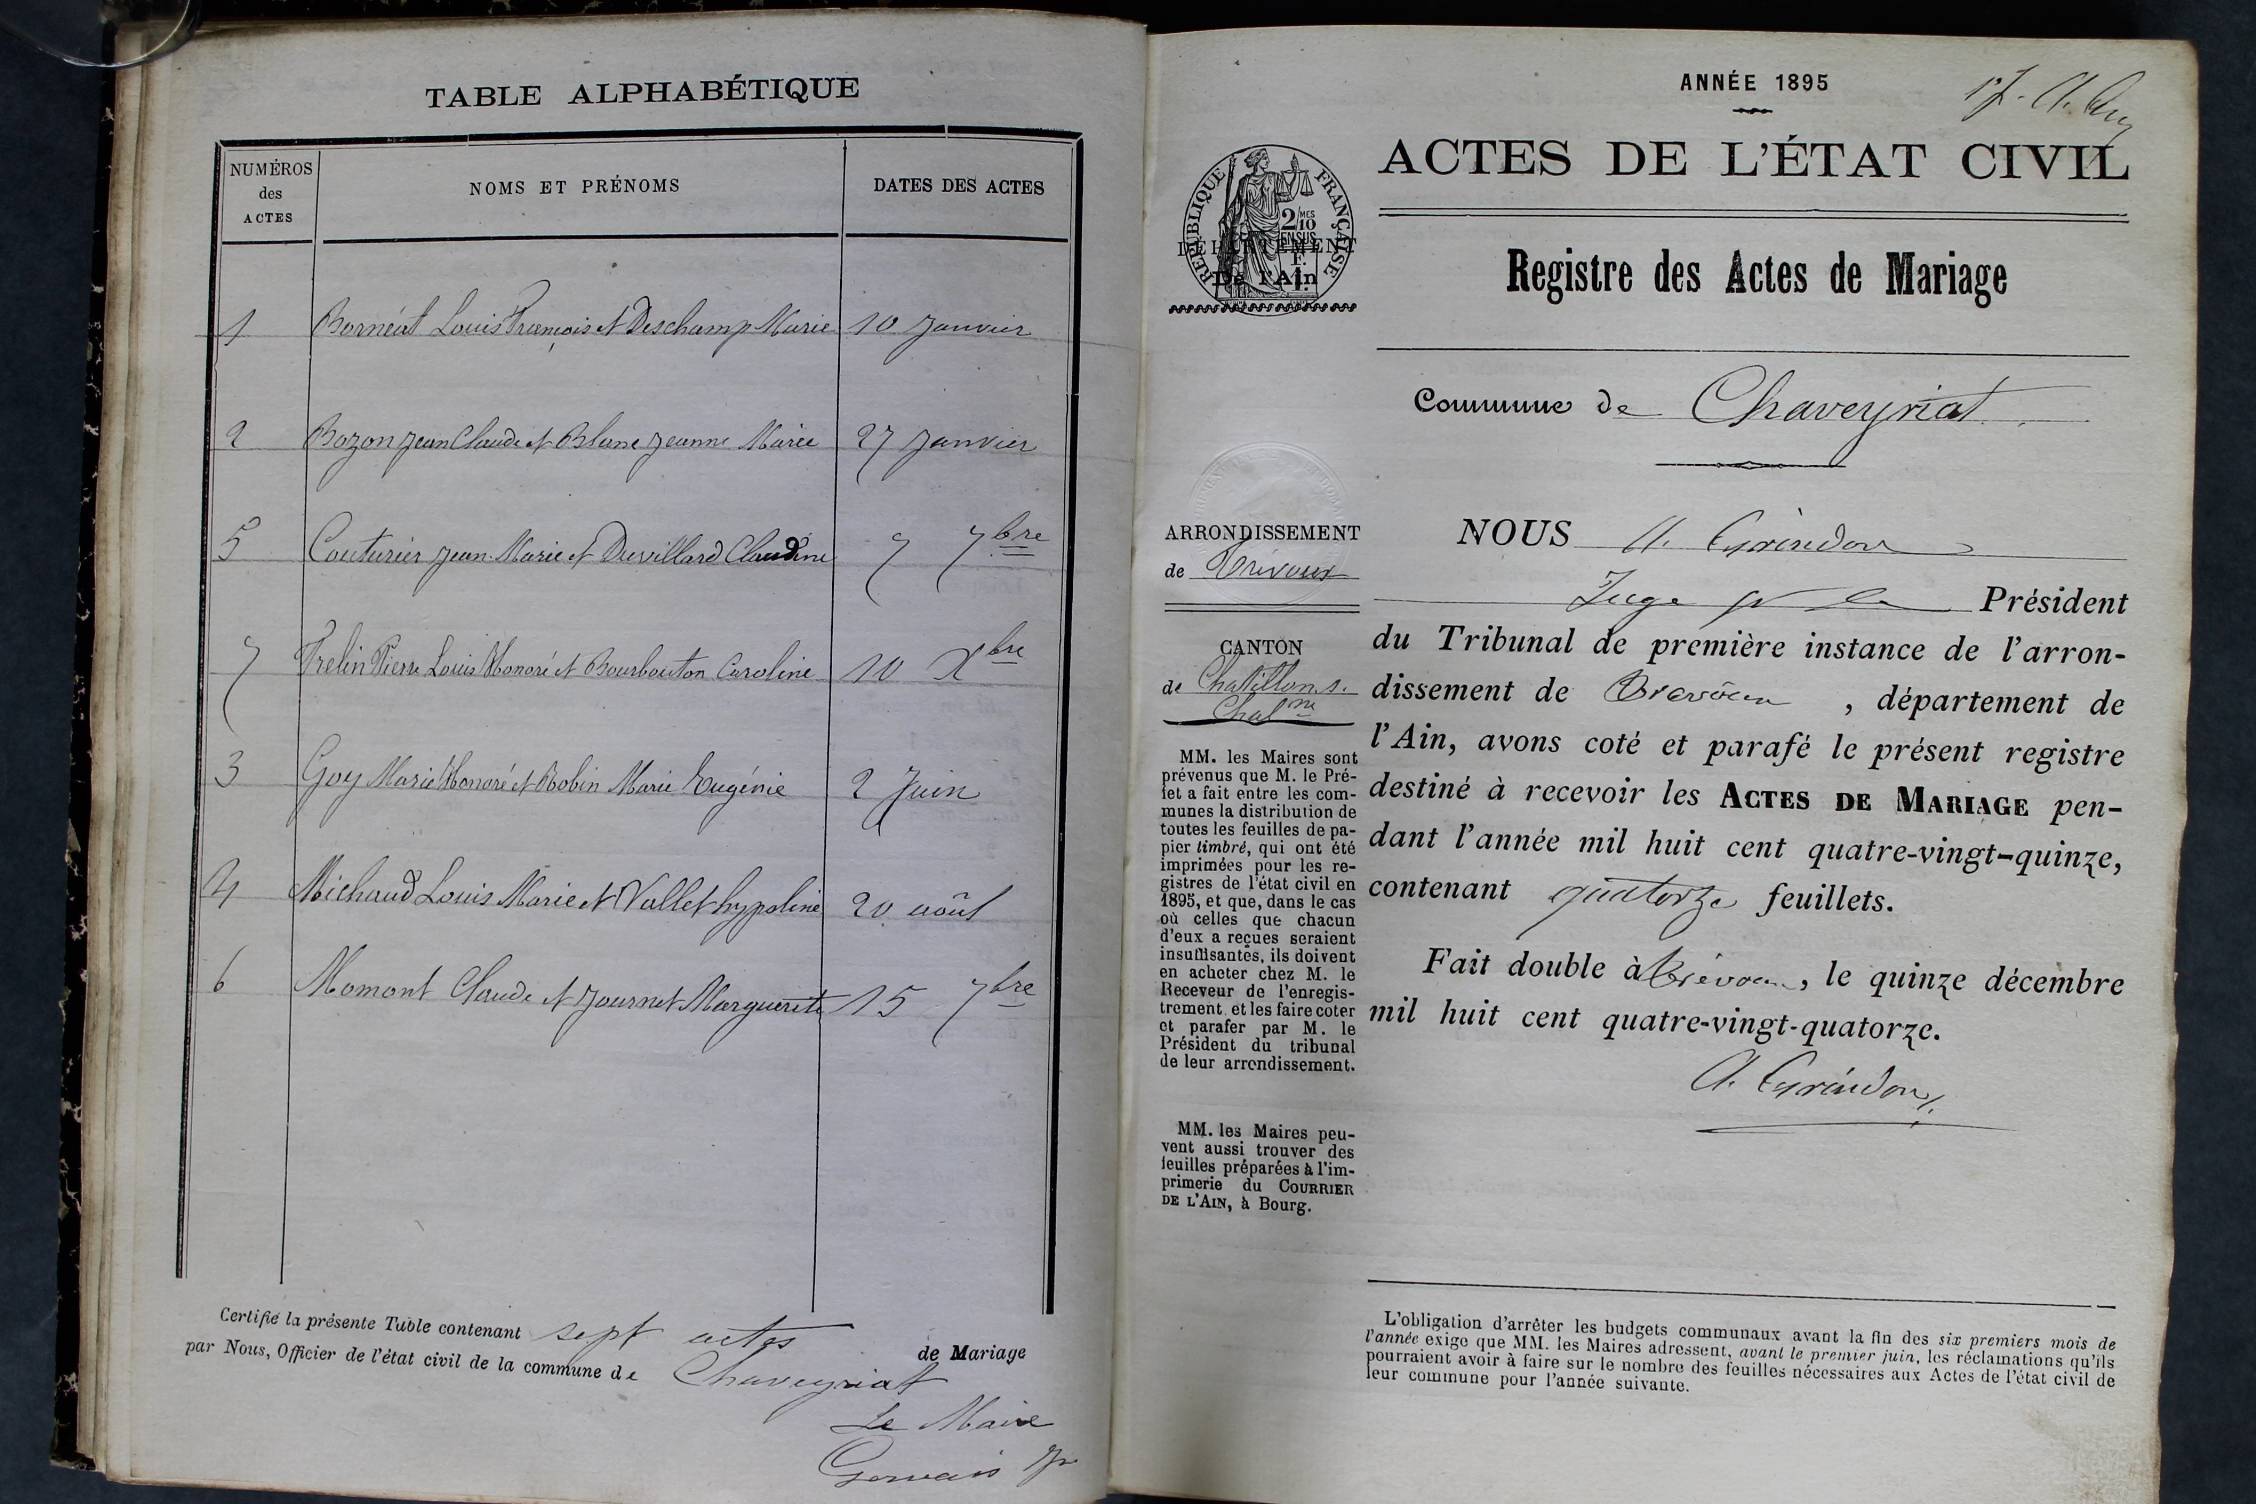 TABLE ALPHABÉTIQUE
NUMÉROS
des
ACTES
NOMS ET PRÉNOMS
DATES DES ACTES
1 Bornéat Louis François et Deschamp Marie 10 Janvier
2 Bozon Jean Claude et Blanc Jeanne Marie 27 Janvier
5 Couturier Jean Marie et Duvillard Claudine 7 7bre
7 Frelin Pierre Louis Honoré et Bourbouton Caroline 10 Xbre
3 Goy Marie Honoré et Robin Marie Eugénie 2 Juin
4 Michaud Louis Marie et Vallet hypoline 20 août
6 Momont Claude et Journet Marguerite 15 7bre
Certifié la présente Table contenant sept actes de Mariage
par Nous, Officier de l'état civil de la commune de Chaveyriat
Le Maire
Gervais
ANNÉE 1895
ACTES DE L'ÉTAT CIVIL
RÉPUBLIQUE FRANÇAISE
2/10MES
EN SUS
DÉPARTEMENT
De l'Ain
Registre des Actes de Mariage
Commune de Chaveyriat
ARRONDISSEMENT
de Trévoux
CANTON
de Chatillon s.
Chalne
MM. les Maires sont
prévenus que M. le Pré-
fet a fait entre les com-
munes la distribution de
toutes les feuilles de pa-
pier timbré, qui ont été
imprimées pour les re-
gistres de l'état civil en
1895, et que, dans le cas
où celles que chacun
d'eux a reçues seraient
insuffisantes, ils doivent
en acheter chez M. le
Receveur de l'enregis-
trement et les faire coter
et parafer par M. le
Président du tribunal
de leur arrondissement.
MM. les Maires peu-
vent aussi trouver des
feuilles préparées à l'im-
primerie du COURRIER
DE L'AIN, à Bourg.
NOUS A. Grindon
Juge pr le Président
du Tribunal de première instance de l'arron-
dissement de Trévoux, département de
l'Ain, avons coté et parafé le présent registre
destiné à recevoir les ACTES DE MARIAGE pen-
dant l'année mil huit cent quatre-vingt-quinze,
contenant quatorze feuillets.
Fait double à Trévoux, le quinze décembre
mil huit cent quatre-vingt-quatorze.
A. Grindon
L'obligation d'arrêter les budgets communaux avant la fin des six premiers mois de
l'année exige que MM. les Maires adressent, avant le premier juin, les réclamations qu'ils
pourraient avoir à faire sur le nombre des feuilles nécessaires aux Actes de l'état civil de
leur commune pour l'année suivante.